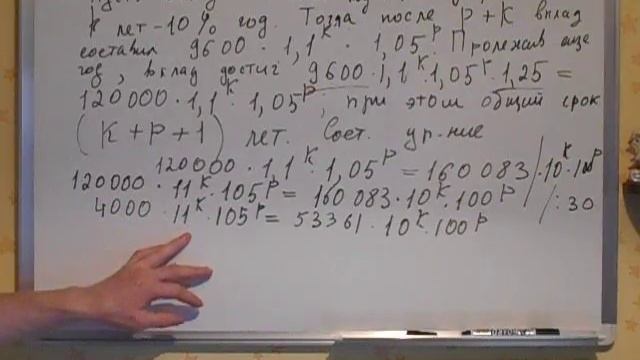 k лет - 10% год. Тогда после p + k вклад
составил 9600 · 1,1^k · 1,05^p. Пролежав еще
год, вклад достиг 9600 · 1,1^k · 1,05^p · 1,25 =
120000 · 1,1^k · 1,05^p, при этом общий срок
(k + p + 1) лет. Сост. ур-ние
120000 · 1,1^k · 1,05^p = 160083 / · 10^k · 100^p
120000 · 11^k · 105^p = 160083 · 10^k · 100^p / : 30
4000 · 11^k · 105^p = 53361 · 10^k · 100^p